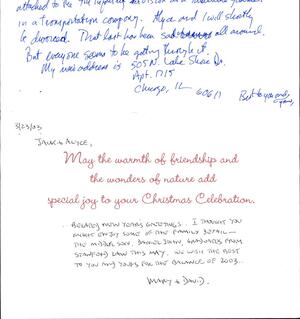 in a Transportation company. Mya and I will shortly
be divorced. That last has been sad all around.
But everyone seems to be getting through it.
My new address is 505 N. Lake Shore Dr.
Apt. 1015
Chicago, IL 60611
Best to you and
3/23/03
JAMES & ALYCE,
May the warmth of friendship and
the wonders of nature add
special joy to your Christmas Celebration.
.. BELATED NEW YEARS GREETINGS.. I THOUGHT YOU
MIGHT ENJOY SOME OF THE FAMILY DETAIL —
THE MIDDLE SON, DANIEL JOHN, GRADUATES FROM
STANFORD LAW THIS MAY. WE WISH THE BEST
TO YOU AND YOURS FOR THE BALANCE OF 2003..
MARY & DAVID.